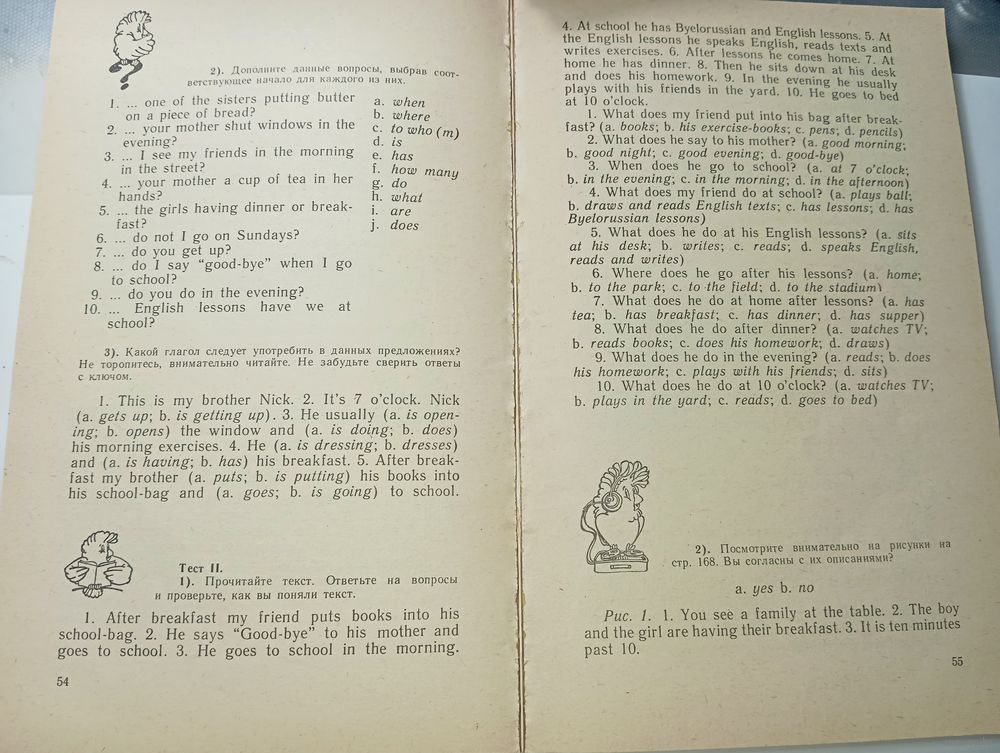 2). Дополните данные вопросы, выбрав соот-
ветствующее начало для каждого из них.
1. ... one of the sisters putting butter
on a piece of bread?
2. ... your mother shut windows in the
evening?
3. ... I see my friends in the morning
in the street?
4. ... your mother a cup of tea in her
hands?
5. ... the girls having dinner or break-
fast?
6. ... do not I go on Sundays?
7. ... do you get up?
8. ... do I say “good-bye” when I go
to school?
9. ... do you do in the evening?
10. ... English lessons have we at
school?
a. when
b. where
c. to who (m)
d. is
e. has
f. how many
g. do
h. what
i. are
j. does
3). Какой глагол следует употребить в данных предложениях?
Не торопитесь, внимательно читайте. Не забудьте сверить ответы
с ключом.
1. This is my brother Nick. 2. It’s 7 o’clock. Nick
(a. gets up; b. is getting up). 3. He usually (a. is open-
ing; b. opens) the window and (a. is doing; b. does)
his morning exercises. 4. He (a. is dressing; b. dresses)
and (a. is having; b. has) his breakfast. 5. After break-
fast my brother (a. puts; b. is putting) his books into
his school-bag and (a. goes; b. is going) to school.
Тест II.
1). Прочитайте текст. Ответьте на вопросы
и проверьте, как вы поняли текст.
1. After breakfast my friend puts books into his
school-bag. 2. He says “Good-bye” to his mother and
goes to school. 3. He goes to school in the morning.
54
4. At school he has Byelorussian and English lessons. 5. At
the English lessons he speaks English, reads texts and
writes exercises. 6. After lessons he comes home. 7. At
home he has dinner. 8. Then he sits down at his desk
and does his homework. 9. In the evening he usually
plays with his friends in the yard. 10. He goes to bed
at 10 o’clock.
1. What does my friend put into his bag after break-
fast? (a. books; b. his exercise-books; c. pens; d. pencils)
2. What does he say to his mother? (a. good morning;
b. good night; c. good evening; d. good-bye)
3. When does he go to school? (a. at 7 o’clock;
b. in the evening; c. in the morning; d. in the afternoon)
4. What does my friend do at school? (a. plays ball;
b. draws and reads English texts; c. has lessons; d. has
Byelorussian lessons)
5. What does he do at his English lessons? (a. sits
at his desk; b. writes; c. reads; d. speaks English,
reads and writes)
6. Where does he go after his lessons? (a. home;
b. to the park; c. to the field; d. to the stadium)
7. What does he do at home after lessons? (a. has
tea; b. has breakfast; c. has dinner; d. has supper)
8. What does he do after dinner? (a. watches TV;
b. reads books; c. does his homework; d. draws)
9. What does he do in the evening? (a. reads; b. does
his homework; c. plays with his friends; d. sits)
10. What does he do at 10 o’clock? (a. watches TV;
b. plays in the yard; c. reads; d. goes to bed)
2). Посмотрите внимательно на рисунки на
стр. 168. Вы согласны с их описаниями?
a. yes b. no
Рис. 1. 1. You see a family at the table. 2. The boy
and the girl are having their breakfast. 3. It is ten minutes
past 10.
55